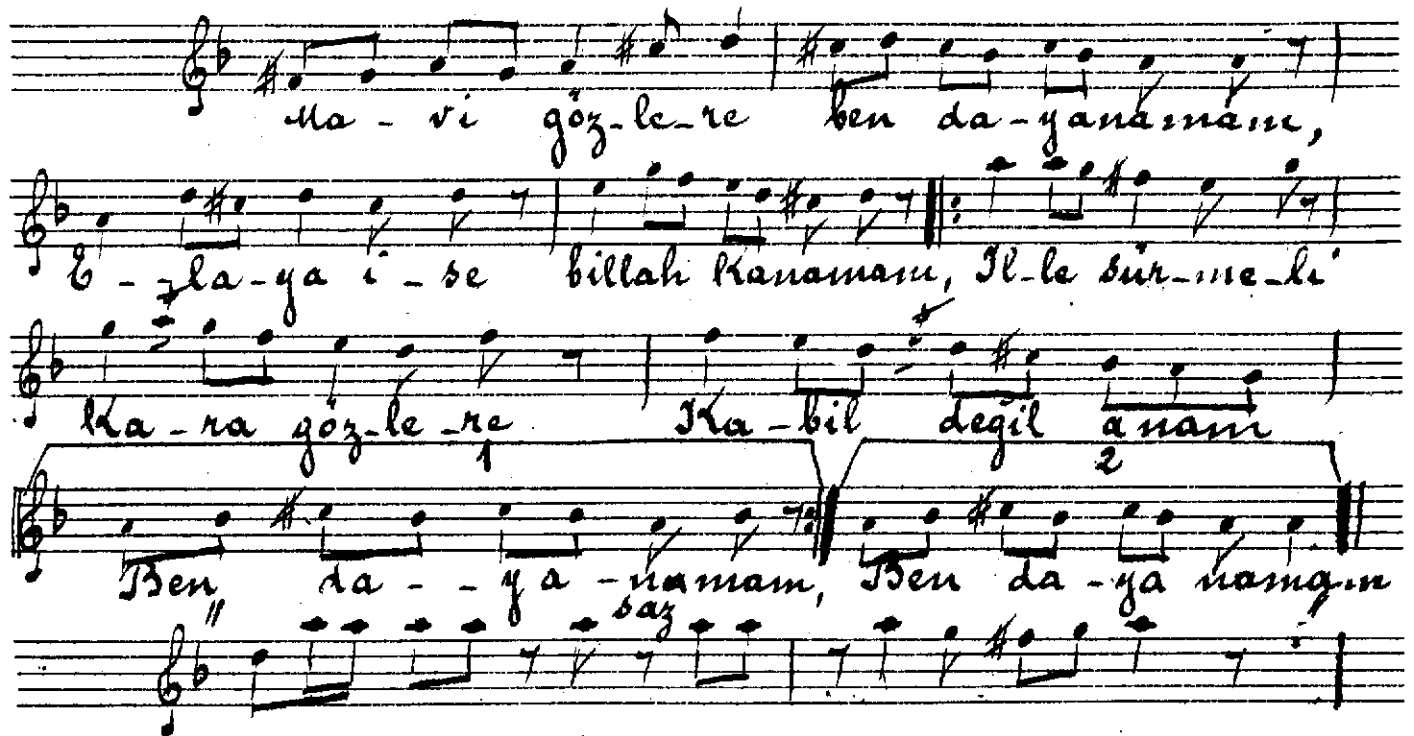 Ma - vi göz-le-re ben da-yanamam,
E - la-ya i-se billah Kanamam, Il-le sür-me-li
Ka-ra göz-le-re Ka-bil değil anam
1 2
Ben da - - ya -namam, Ben da-ya namam
saz